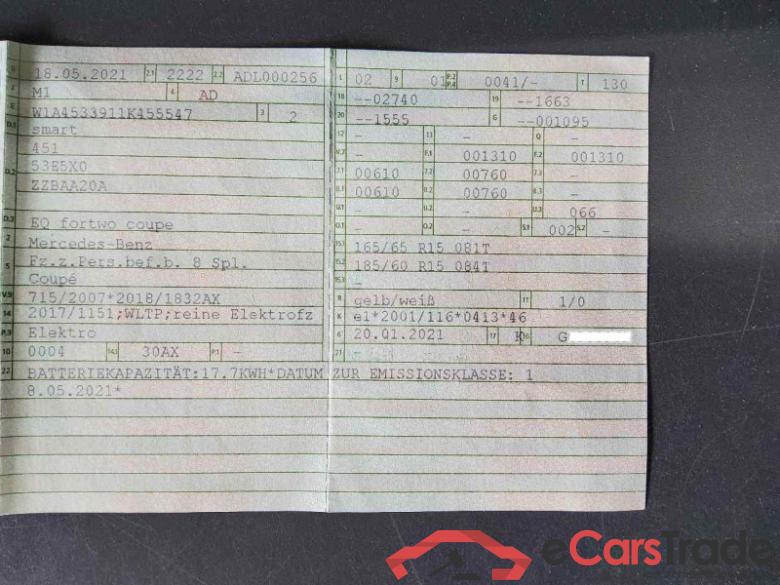 18.05.2021 2.1 2222 2.2 ADL000256
M1 4 AD
W1A4533911K455547 3 2
smart
451
53E5X0
ZZBAA20A
D.3 EQ fortwo coupe
2 Mercedes-Benz
5 Fz.z.Pers.bef.b. 8 Spl.
Coupé
V.9 715/2007*2018/1832AX
14 2017/1151;WLTP;reine Elektrofz
P.3 Elektro
10 0004 14.1 30AX P.1 -
22 BATTERIEKAPAZITÄT:17.7KWH*DATUM ZUR EMISSIONSKLASSE: 1
8.05.2021*
L 02 9 01 P.2 P.4 0041/- T 130
18 --02740 19 --1663
20 --1555 G --001095
12 - 13 - Q -
V.7 - F.1 001310 F.2 001310
7.1 00610 7.2 00760 7.3 -
8.1 00610 8.2 00760 8.3 -
U.1 - U.2 - U.3 066
O.1 - O.2 - S.1 002 S.2 -
15.1 165/65 R15 081T
15.2 185/60 R15 084T
15.3 -
R gelb/weiß 11 1/0
K e1*2001/116*0413*46
6 20.01.2021 17 K 16 G
21 -
eCarsTrade